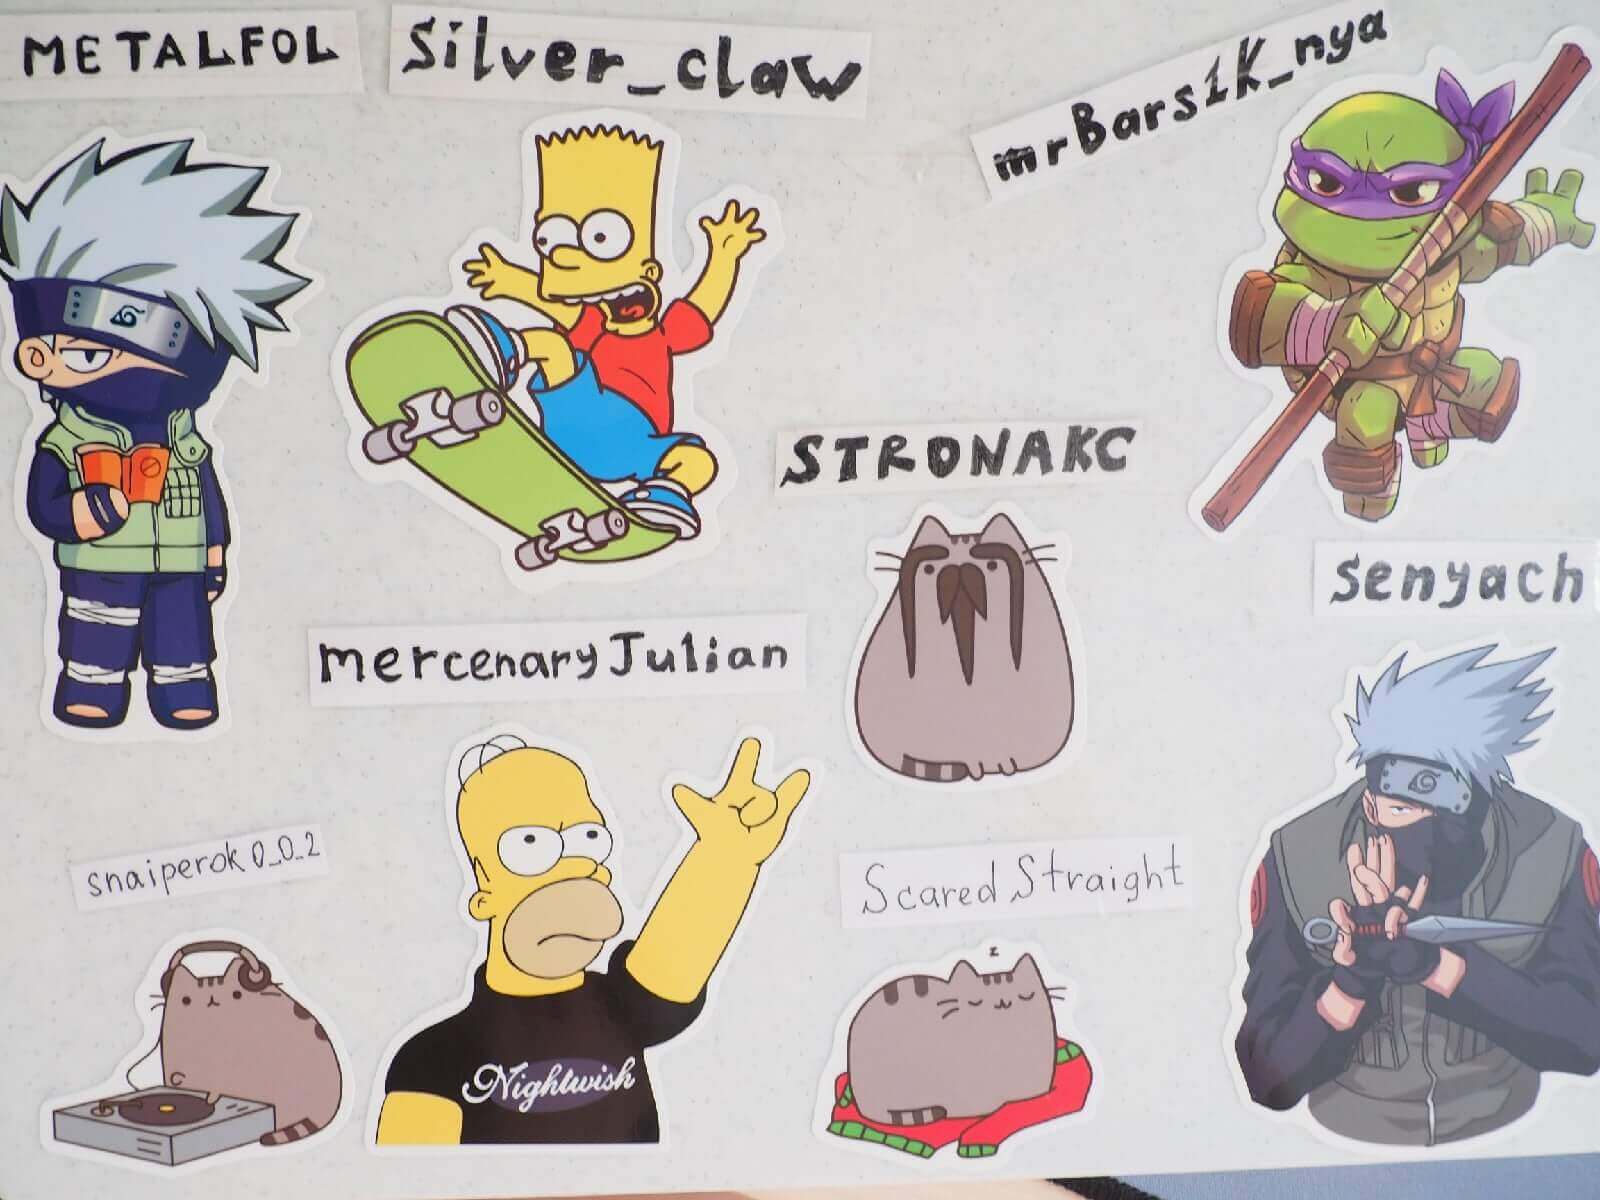 METALFOL
Silver_claw
mrBars1K_nya
STRONAKC
senyach
mercenaryJulian
snaiperok0_0_2
Scared_Straight
z
Nightwish